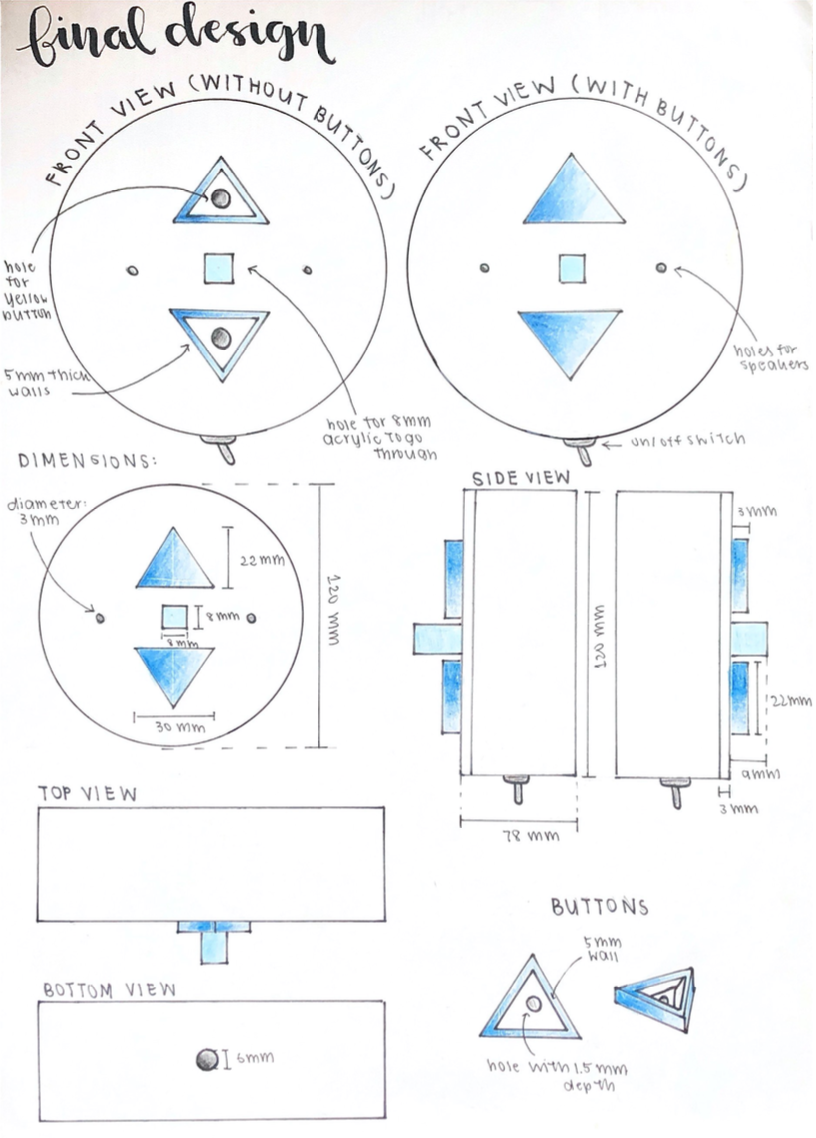 final design
FRONT VIEW (WITHOUT BUTTONS)
FRONT VIEW (WITH BUTTONS)
hole
for
yellow
button
5mm thick
walls
hole for 8mm
acrylic to go
through
holes for
speakers
on/off switch
DIMENSIONS:
diameter:
3mm
22mm
8mm
8mm
30 mm
120 mm
SIDE VIEW
3mm
120 mm
22mm
9mm
3mm
78 mm
TOP VIEW
BOTTOM VIEW
6mm
BUTTONS
5mm
wall
hole with 1.5 mm
depth